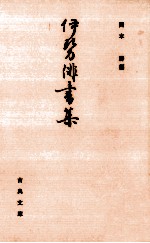 岡本 勝編
伊勢俳書集
古典文庫